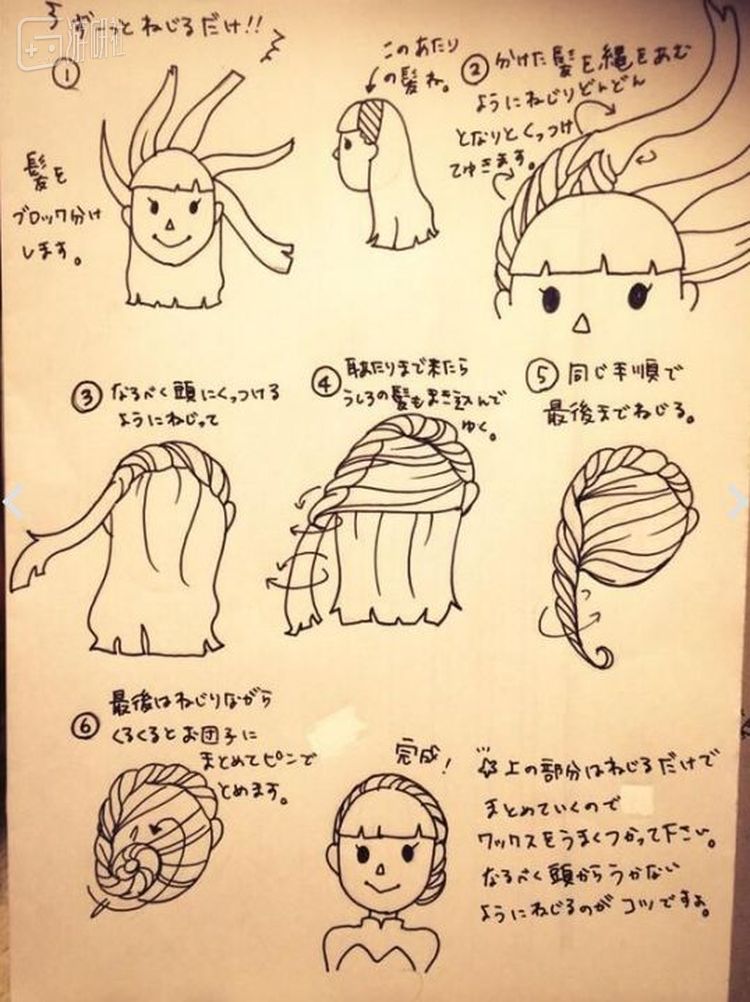 ずーっとねじるだけ!!
①
髪を
ブロック分け
します。
このあたり
の髪ね。
② 分けた髪を縄をあむ
ようにねじりどんどん
となりとくっつけ
てゆきます。
③ なるべく頭にくっつける
ようにねじって
④ 耳あたりまで来たら
うしろの髪もまき込んで
ゆく。
⑤ 同じ手順で
最後までねじる。
⑥ 最後はねじりながら
くるくるとお団子に
まとめてピンで
とめます。
完成!
☆上の部分はねじるだけで
まとめていくので
ワックスをうまくつかって下さい。
なるべく頭からうかない
ようにねじるのがコツですよ。